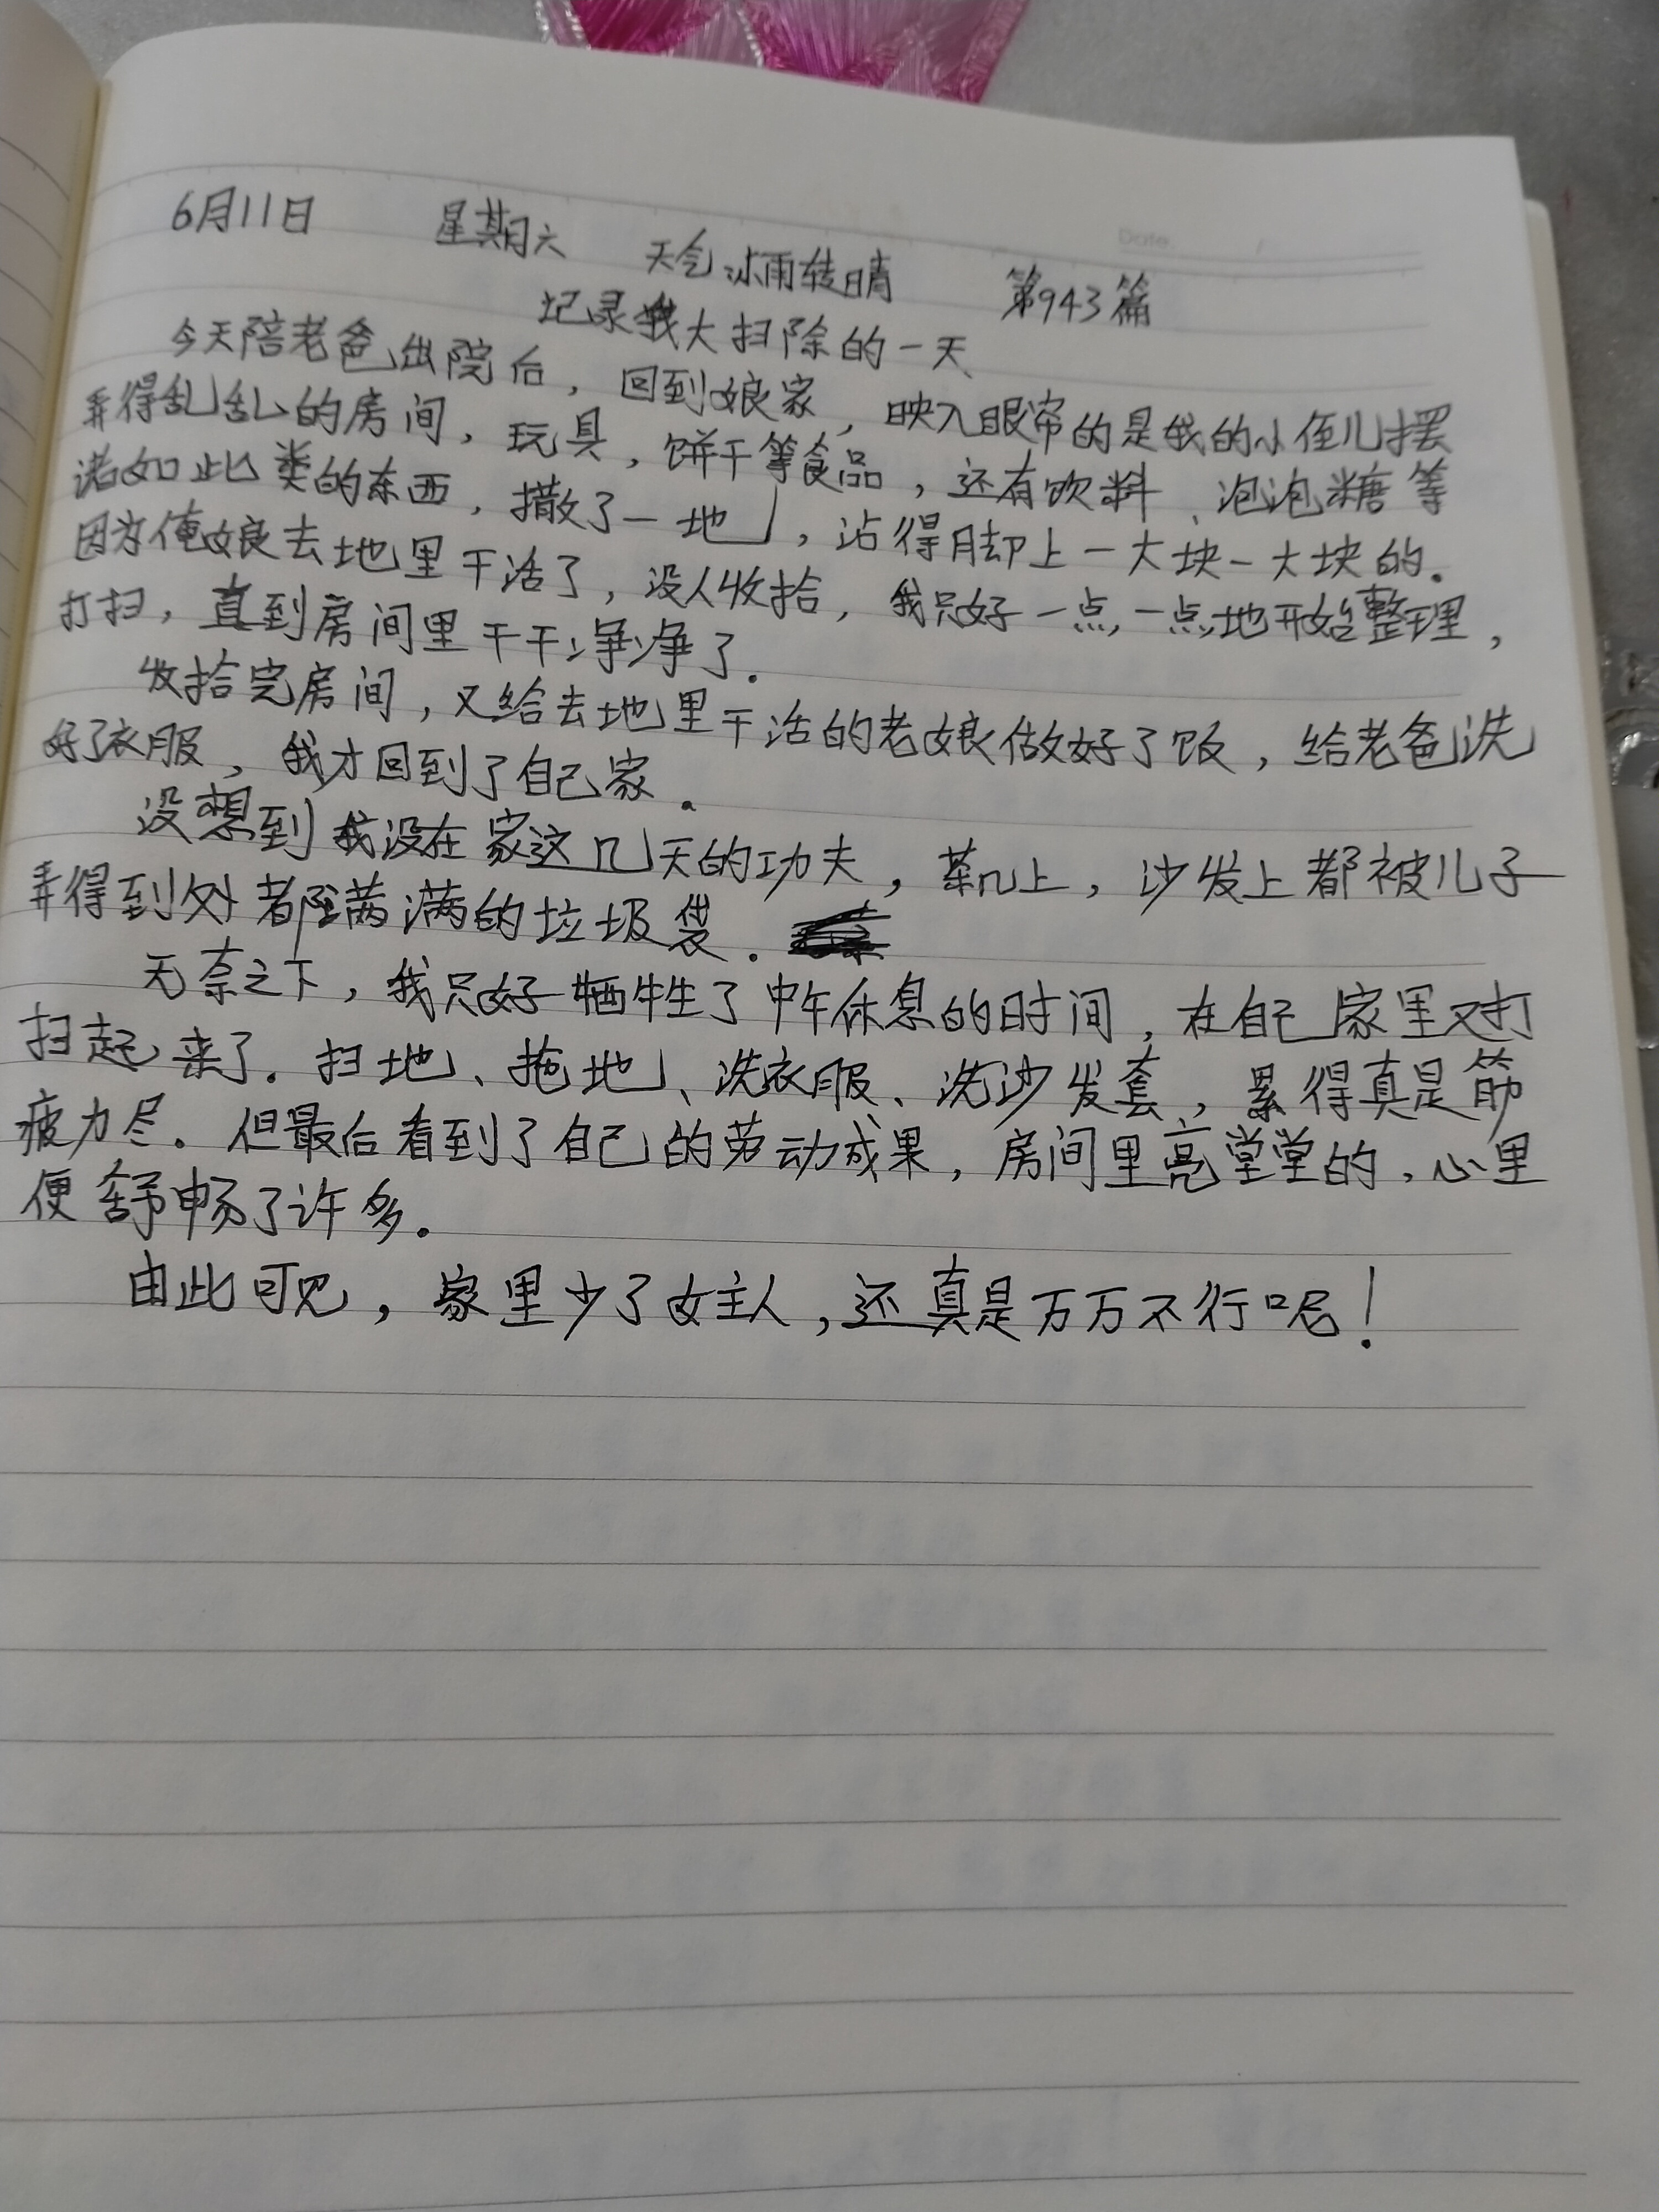 Date /
6月11日 星期六 天气 冰雨转晴 第943篇
记录我大扫除的一天
今天陪老爸出院后，回到娘家，映入眼帘的是我的小侄儿摆
弄得乱乱的房间，玩具，饼干等食品，还有饮料、泡泡糖等
诸如此类的东西，撒了一地，沾得脚上一大块一大块的。
因为俺娘去地里干活了，没人收拾，我只好一点一点地开始整理，
打扫，直到房间里干干净净了。
收拾完房间，又给去地里干活的老娘做好了饭，给老爸洗
好了衣服，我才回到了自己家。
没想到我没在家这几天的功夫，茶几上，沙发上都被儿子
弄得到处都堆满满的垃圾袋。
无奈之下，我只好牺牲了中午休息的时间，在自己家里又打
扫起来了。扫地、拖地、洗衣服、洗沙发套，累得真是筋
疲力尽。但最后看到了自己的劳动成果，房间里亮堂堂的，心里
便舒畅了许多。
由此可见，家里少了女主人，还真是万万不行呢！